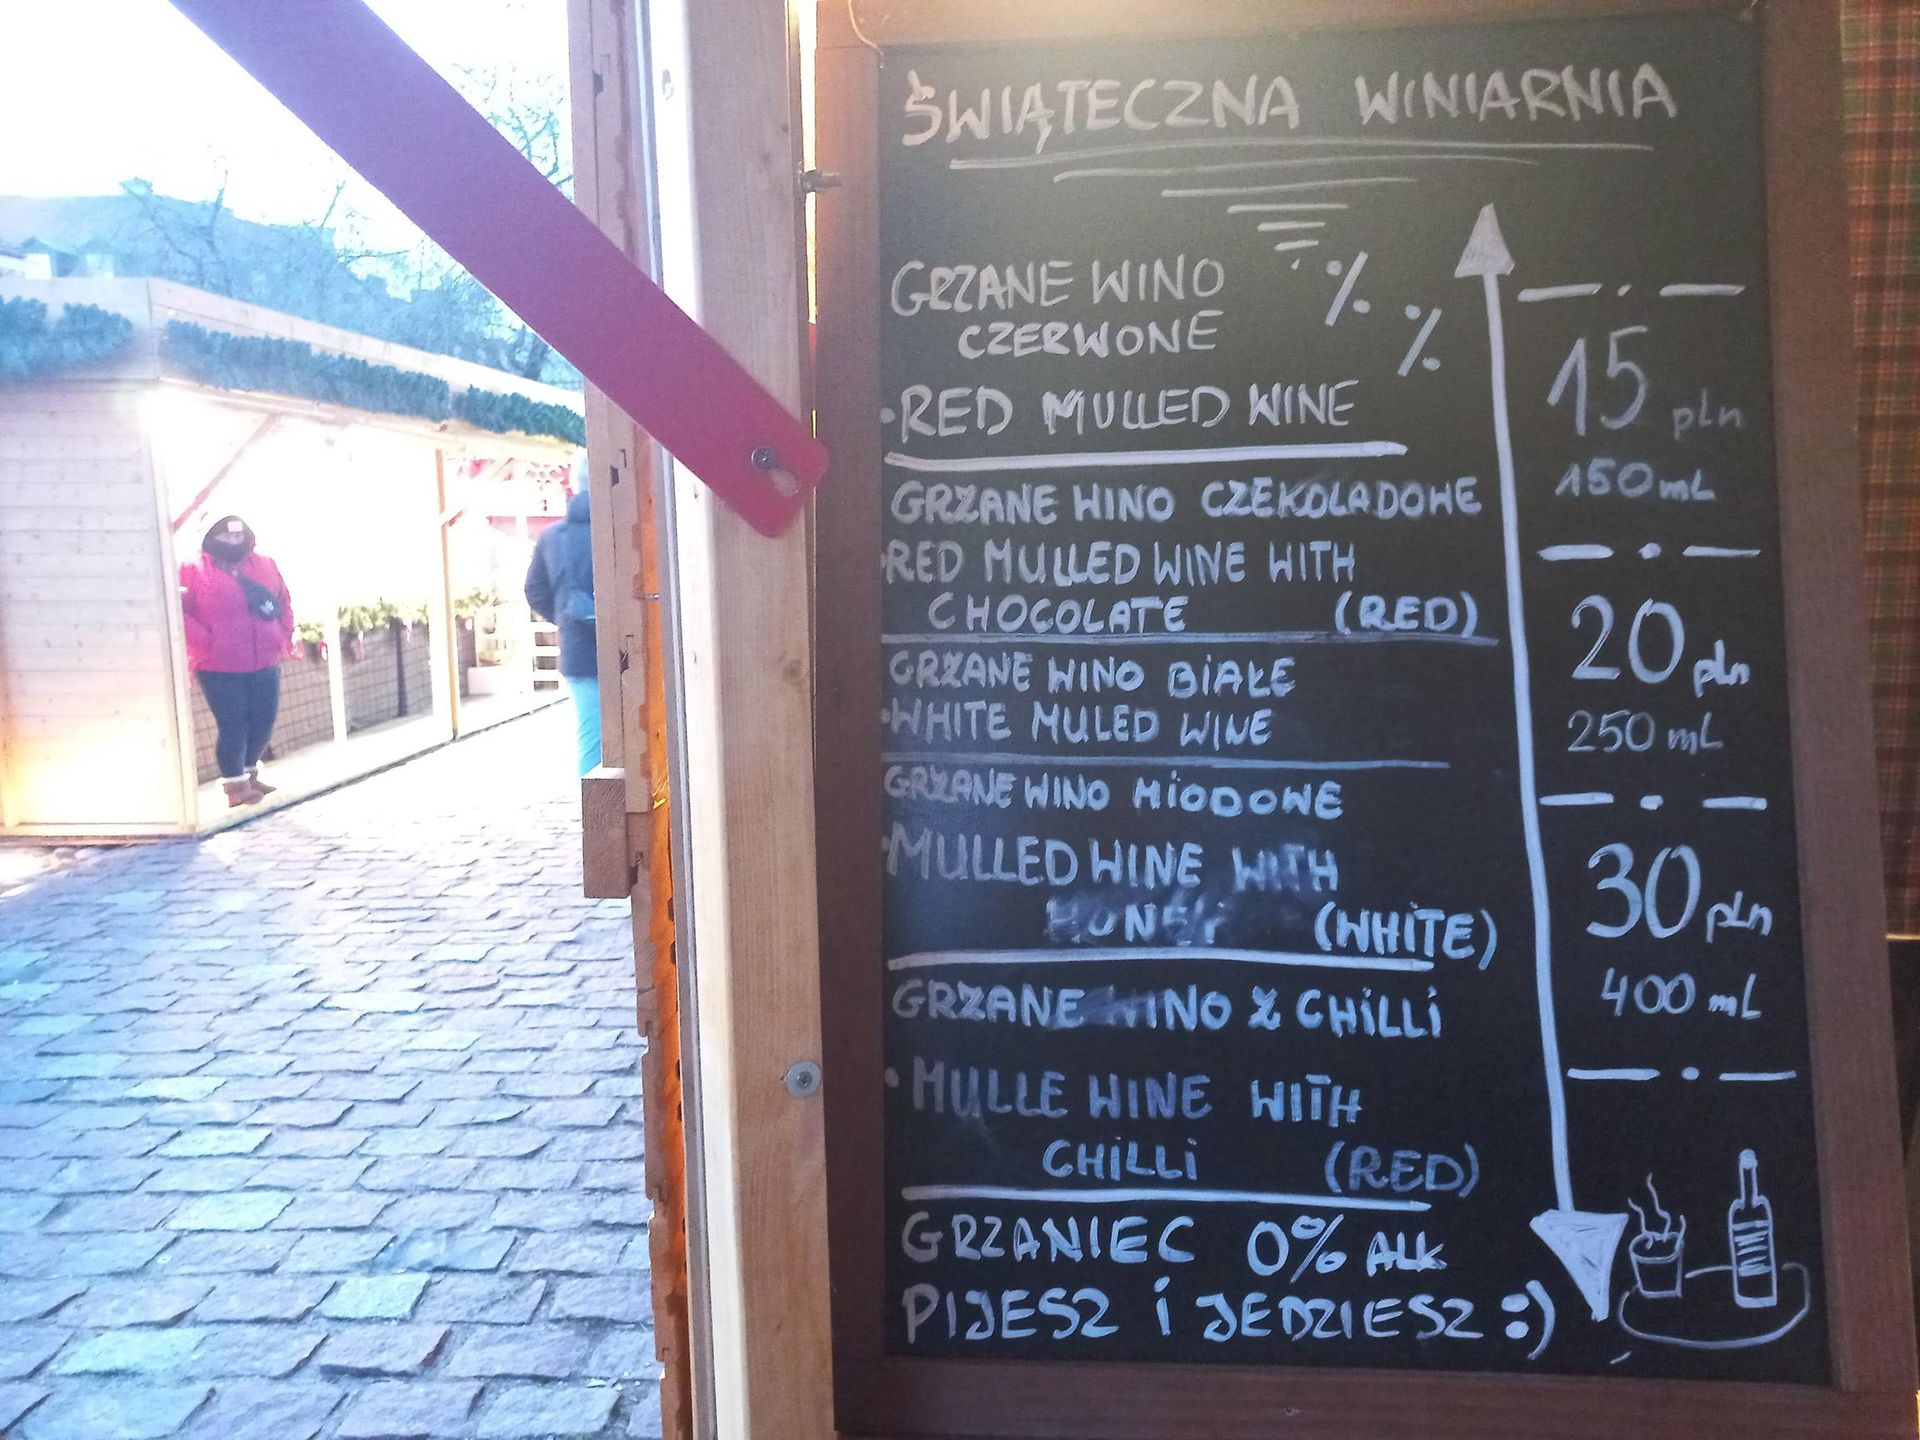 ŚWIĄTECZNA WINIARNIA
GRZANE WINO % %
CZERWONE
• RED MULLED WINE
GRZANE WINO CZEKOLADOWE
• RED MULLED WINE WITH
CHOCOLATE (RED)
GRZANE WINO BIAŁE
• WHITE MULED WINE
GRZANE WINO MIODOWE
• MULLED WINE WITH
HONEY (WHITE)
GRZANE WINO Z CHILLI
• MULLE WINE WITH
CHILLI (RED)
GRZANIEC 0% ALK
PIJESZ i JEDZIESZ :)
15 pln
150 mL
20 pln
250 mL
30 pln
400 mL